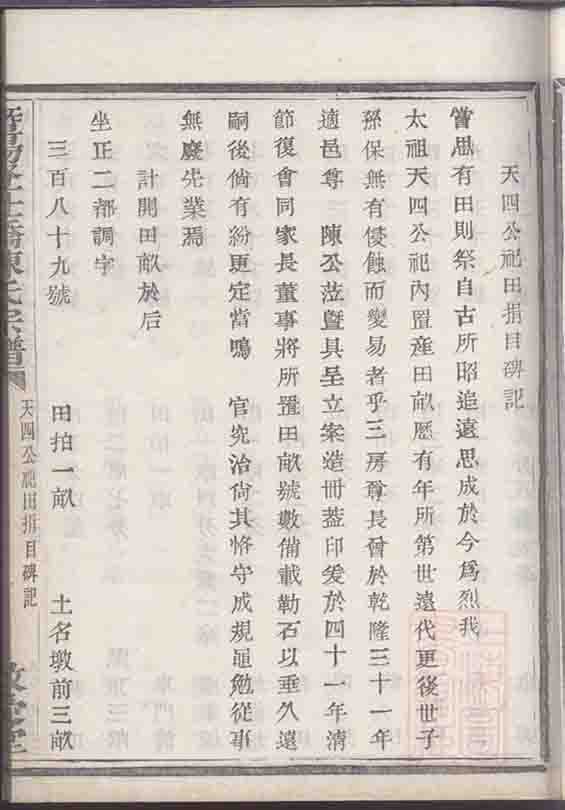 天四公祀田指目碑記
嘗思有田則祭自古所昭追遠思成於今爲烈我
太祖天四公祀內置產田畝歷有年所第世遠代更後世子
孫保無有侵蝕而變易者乎三房尊長曾於乾隆三十一年
適邑尊 陳公蒞暨具呈立案造冊葢印爰於四十一年清
節復會同家長董事將所置田畝號數備載勒石以垂久遠
嗣後倘有紛更定當鳴 官究治尚其恪守成規黽勉從事
無廢先業焉
計開田畝於后
坐正二都調字
三百八十九號 田拍一畝 土名墩前三畝
陳氏宗譜
天四公祀田指目碑記